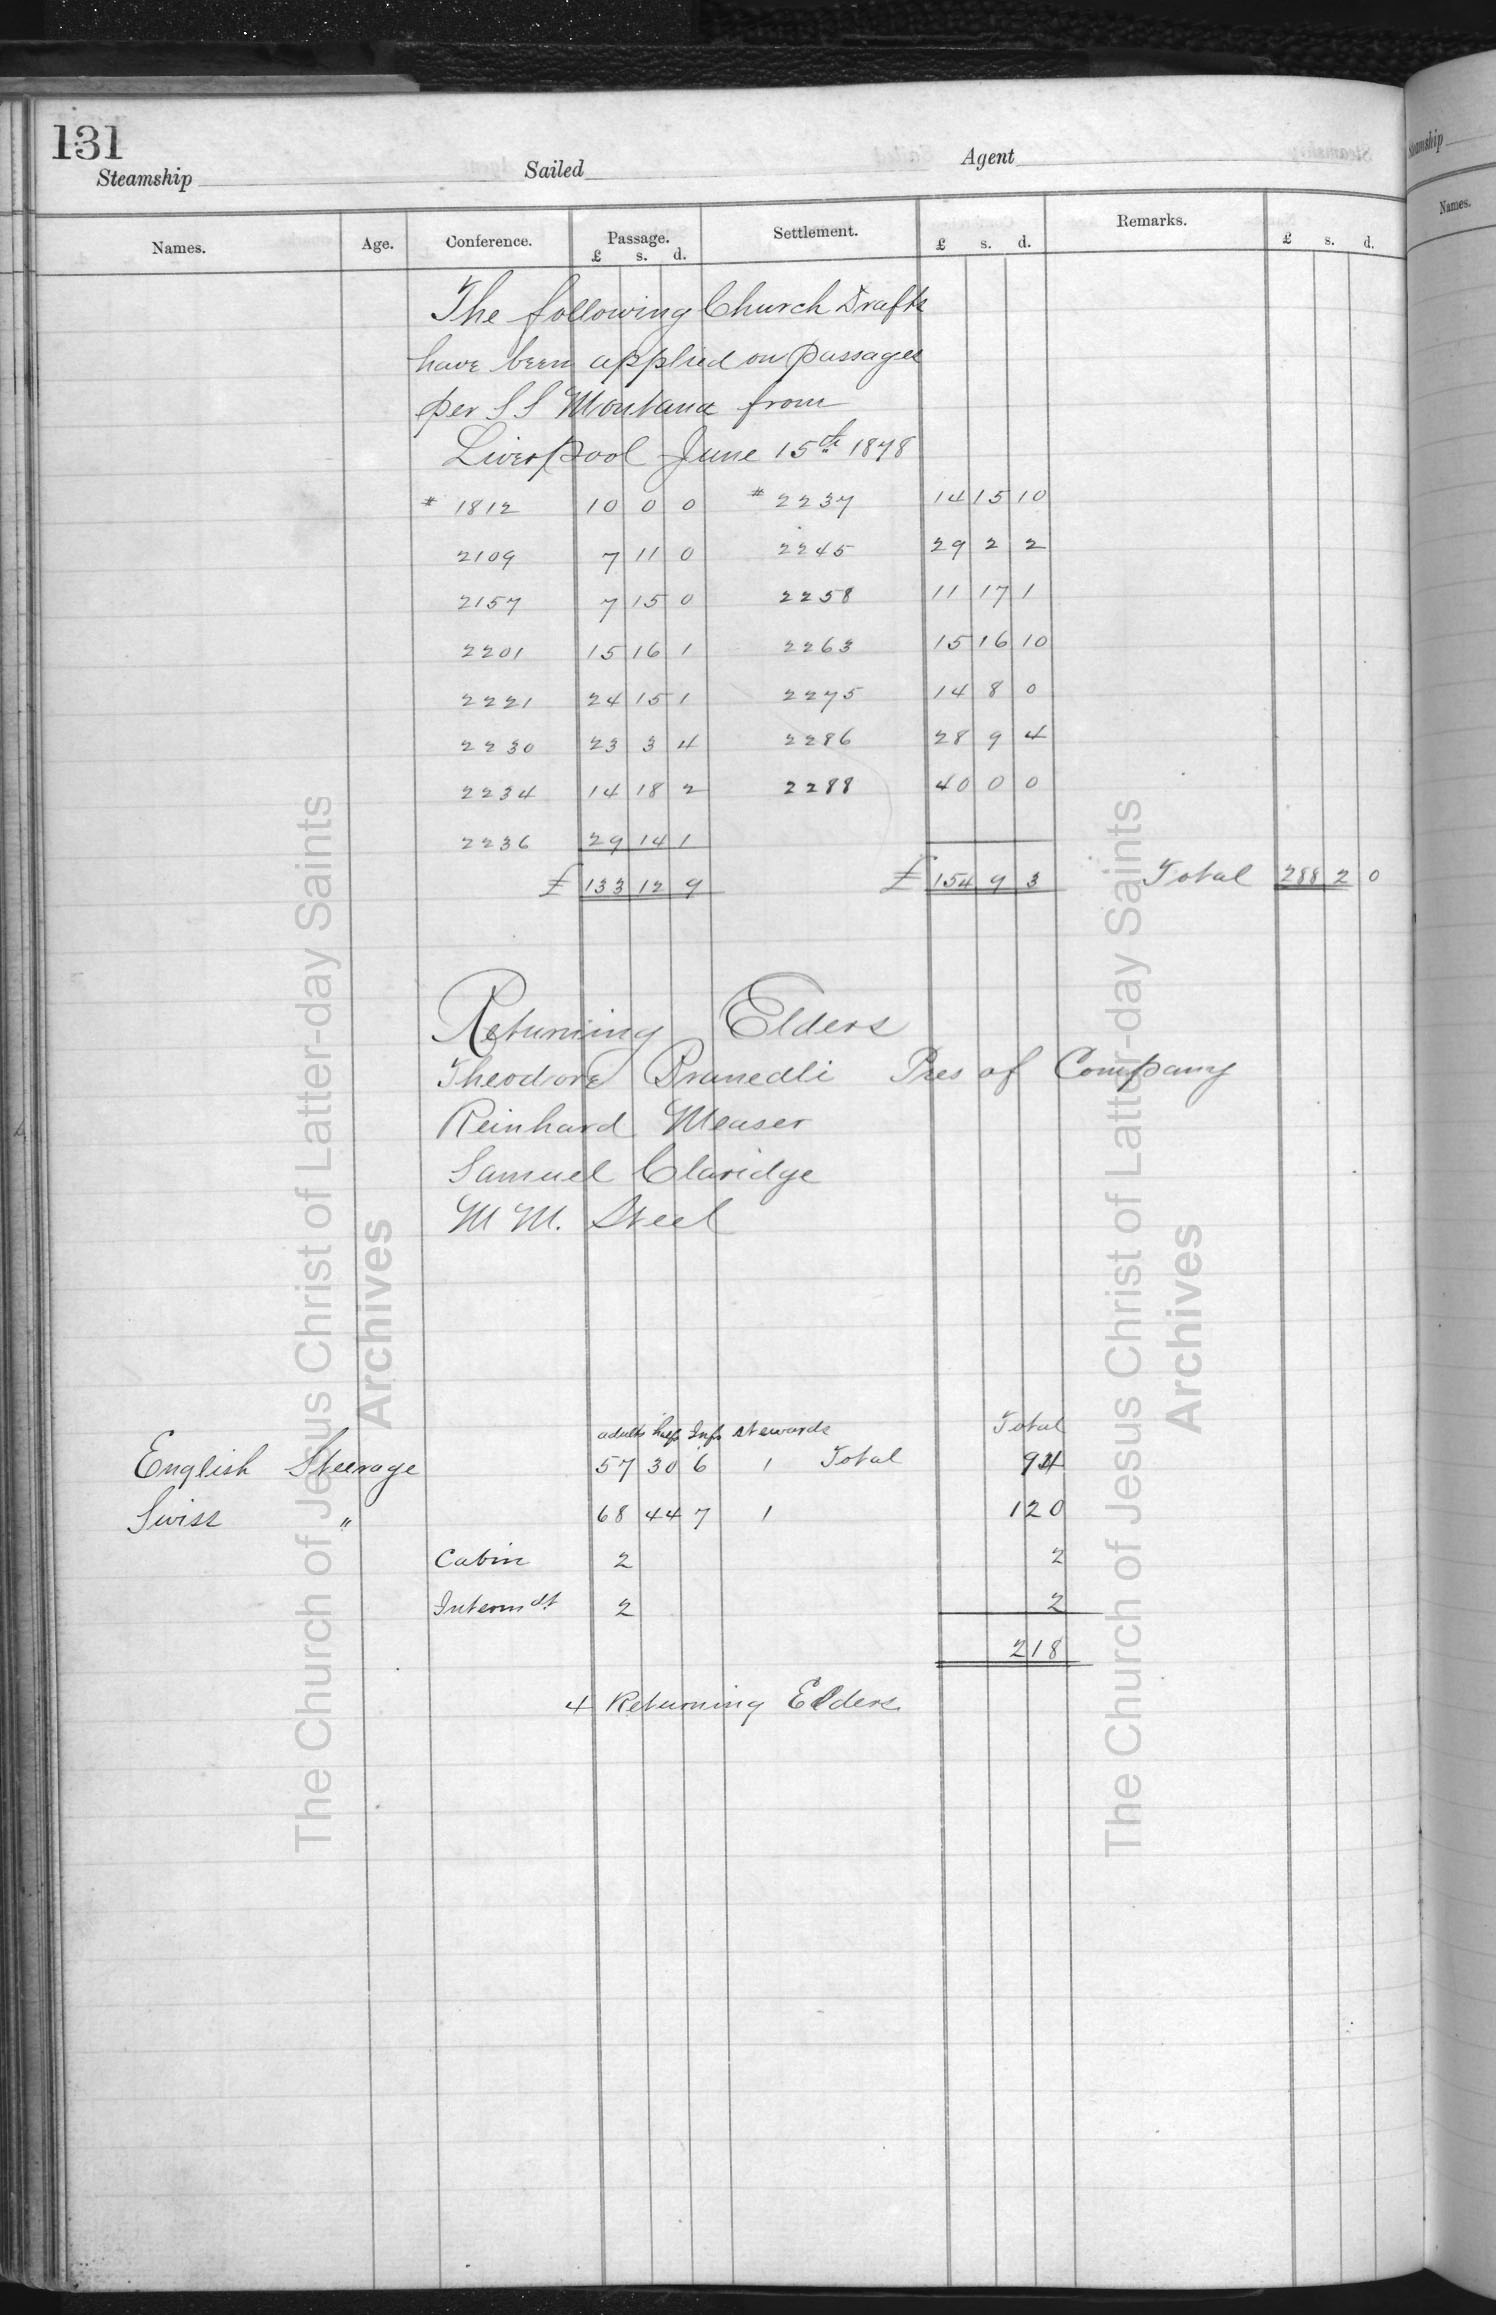 131
Steamship Sailed Agent
Names. Age. Conference. Passage. Settlement. £ s. d. Remarks. £ s. d.
£ s. d.
The following Church Drafts
have been applied on passages
per S S Montana from
Liverpool June 15th 1878
# 1812 10 0 0 # 2237 14 15 10
2109 7 11 0 2245 29 2 2
2157 7 15 0 2258 11 17 1
2201 15 16 1 2263 15 16 10
2221 24 15 1 2275 14 8 0
2230 23 3 4 2286 28 9 4
2234 14 18 2 2288 40 0 0
2236 29 14 1
£ 133 12 9 £ 154 9 3 Total 288 2 0
Returning Elders
Theodore Brandli Pres of Company
Reinhard Measer
Samuel Claridge
M M. Steel
adults half Inft stewards Total
English Steerage 57 30 6 1 Total 94
Swiss " 68 44 7 1 120
Cabin 2 2
Intermdt 2 2
218
4 Returning Elders
The Church of Jesus Christ of Latter-day Saints
Archives
The Church of Jesus Christ of Latter-day Saints
Archives
Steamship
Names.